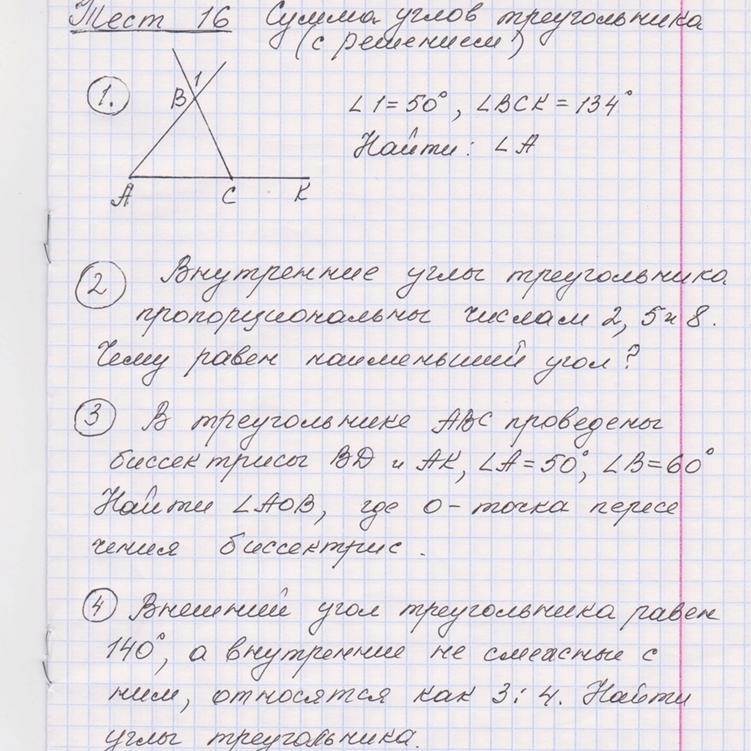 Тест 16 Сумма углов треугольника
(с решением!)
1. B 1 A C K
∠1=50°, ∠BCK=134°
Найти: ∠A
2 Внутренние углы треугольника
пропорциональны числам 2, 5 и 8.
Чему равен наименьший угол?
3 В треугольнике ABC проведены
биссектрисы BD и AK, ∠A=50°, ∠B=60°
Найти ∠AOB, где O-точка пересе
чения биссектрис.
4 Внешний угол треугольника равен
140°, а внутренние не смежные с
ним, относятся как 3:4. Найти
углы треугольника.